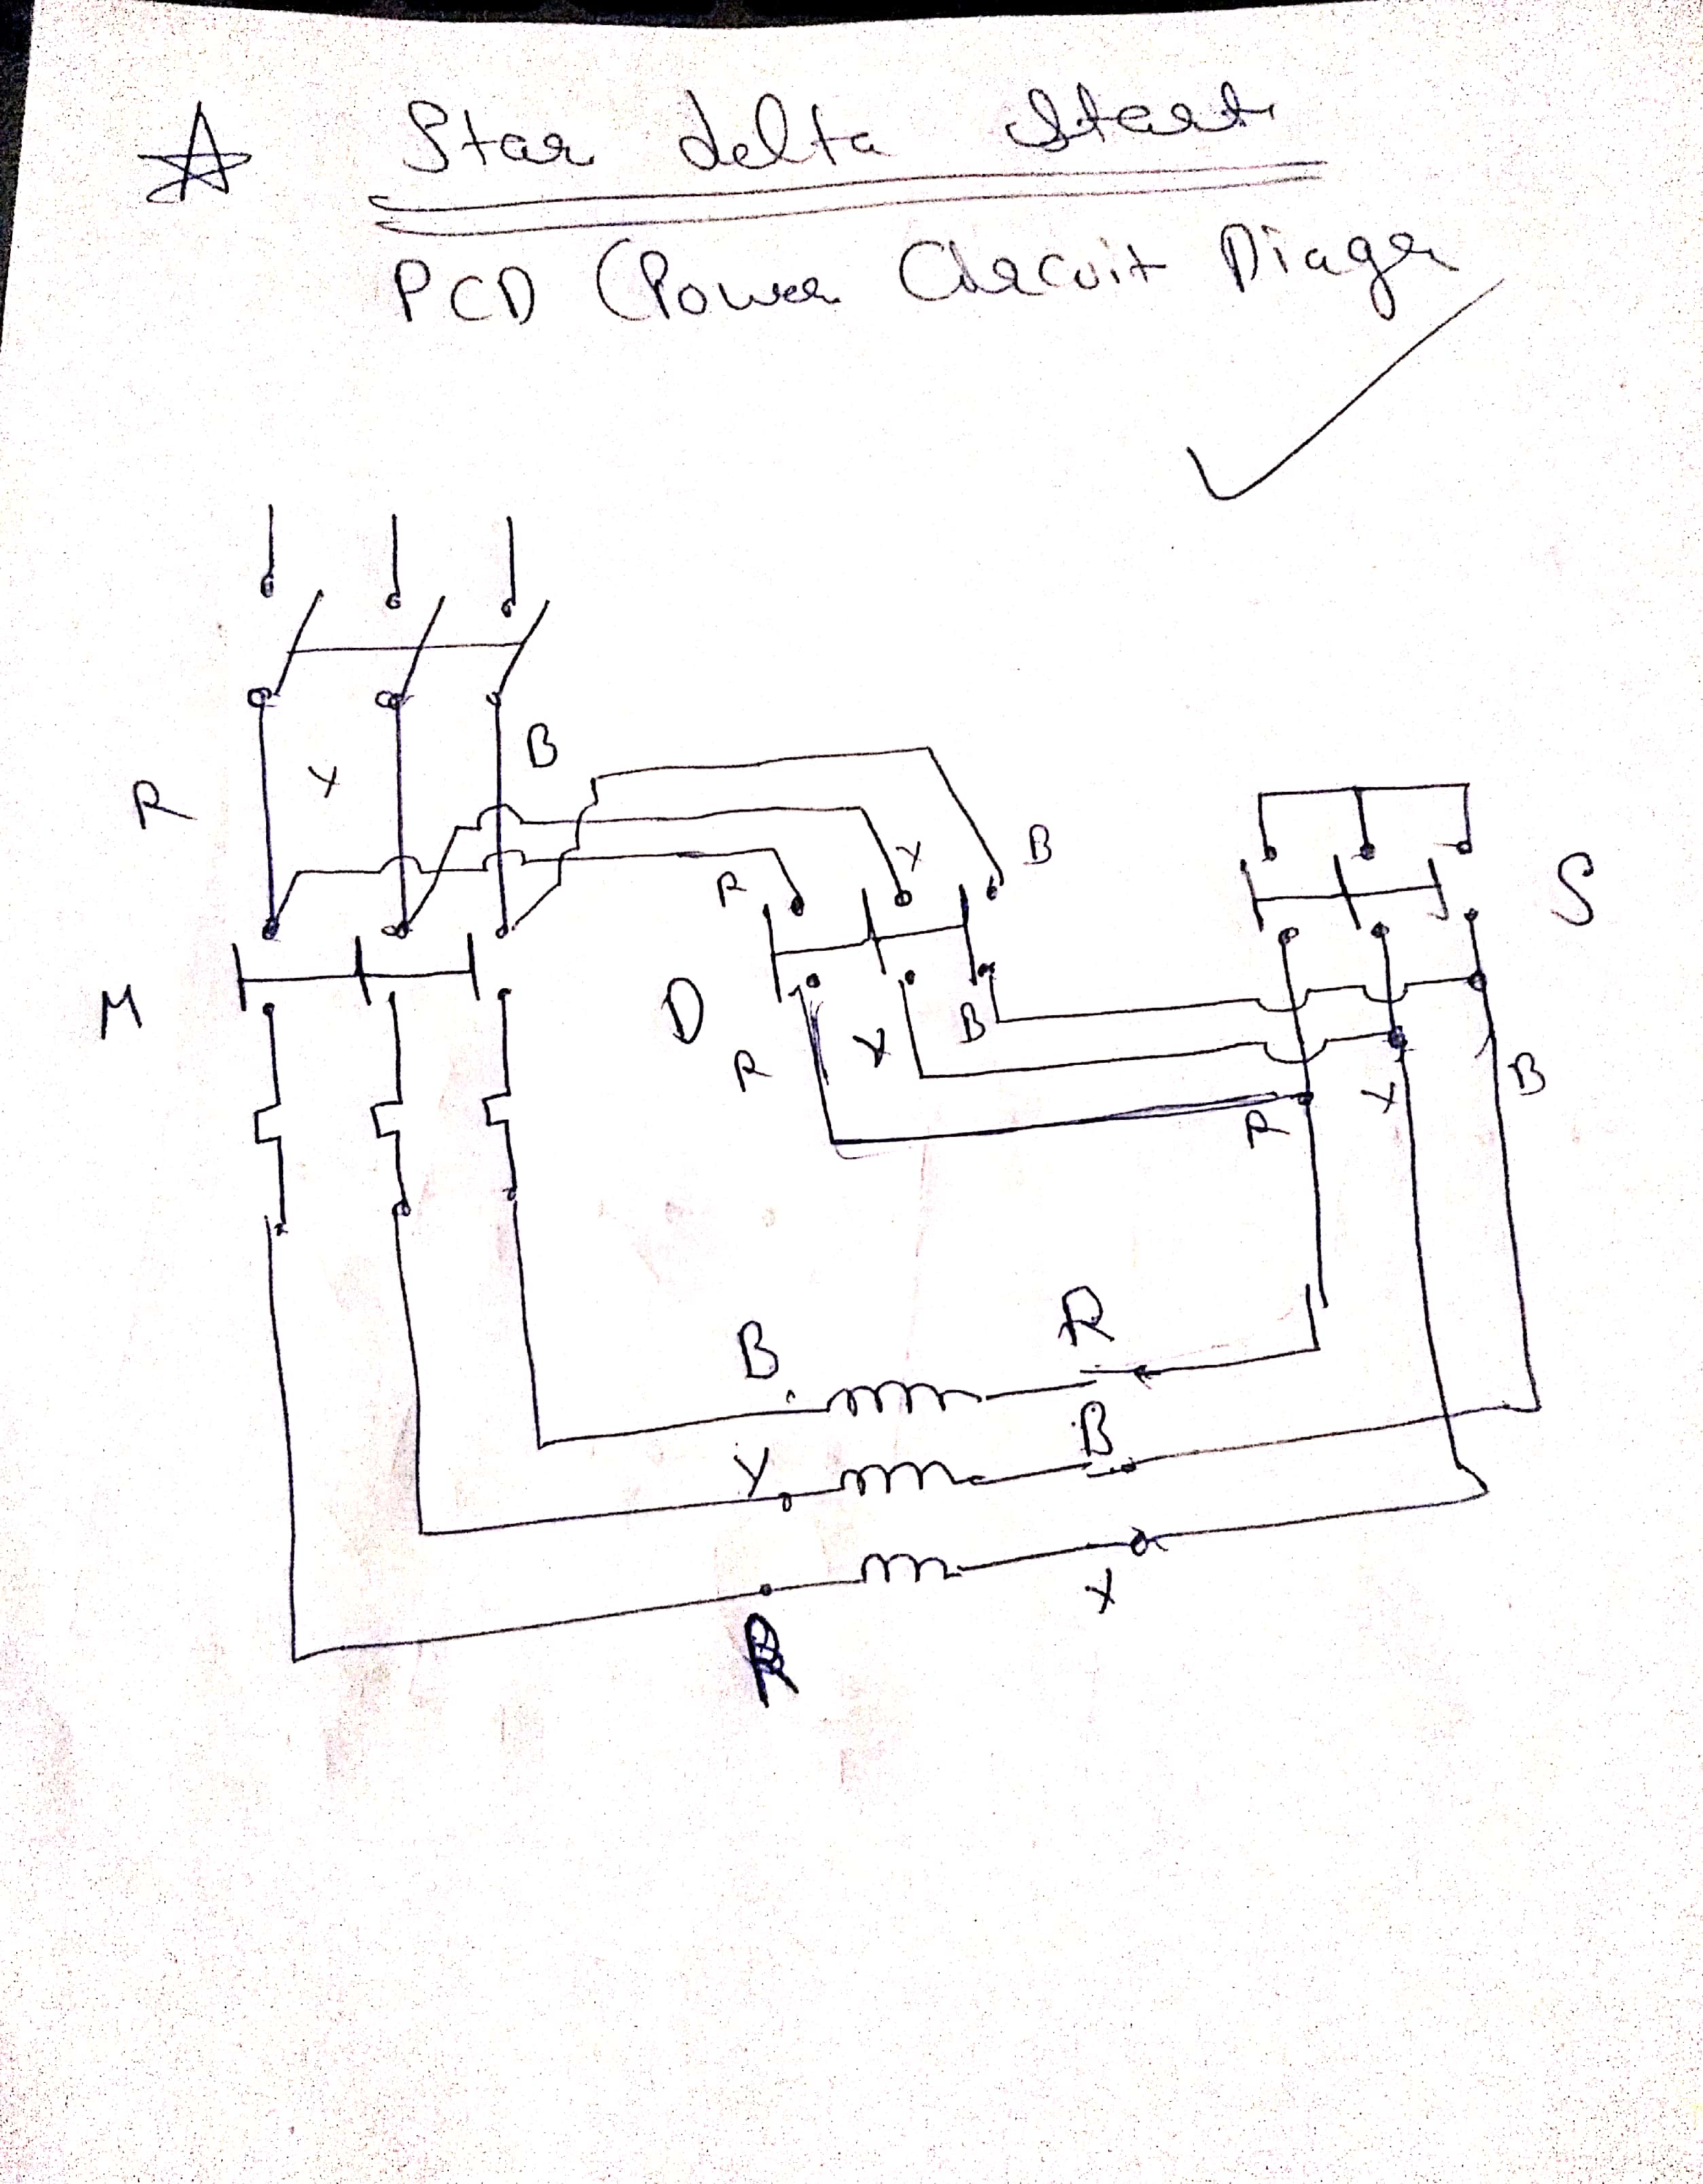 Star delta Start
PCD (Power Circuit Diagr
B
Y
R
B
Y
R
S
M
D
B
R
Y
B
Y
R
R
B
B
Y
Y
R